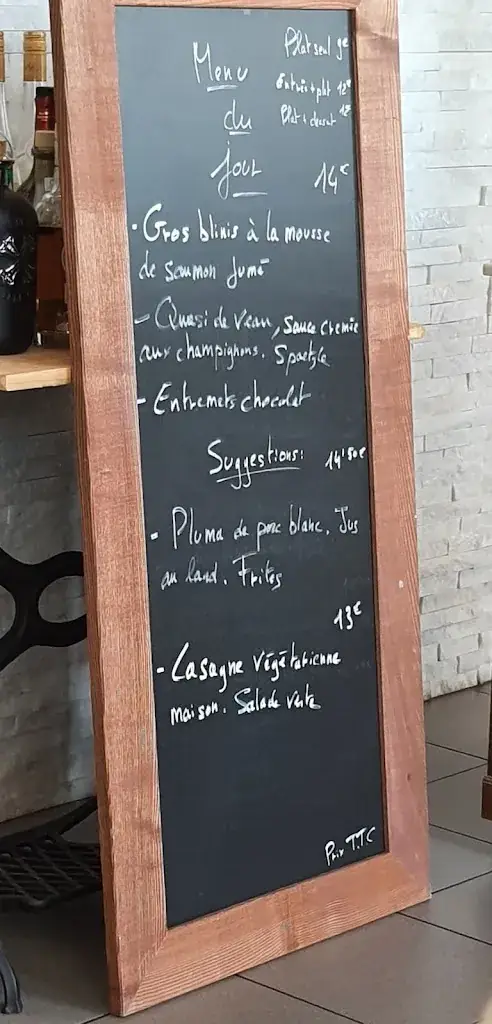 Menu
du
jour
Plat seul 9€
Entrée + plat 12€
Plat + dessert 12€
14€
- Gros blinis à la mousse
de saumon fumé
- Quasi de veau, sauce crémée
aux champignons. Spaetzle
- Entremets chocolat
Suggestions: 14'50€
- Pluma de porc blanc. Jus
au lard. Frites
13€
- Lasagne végétarienne
maison. Salade verte
Prix T.T.C